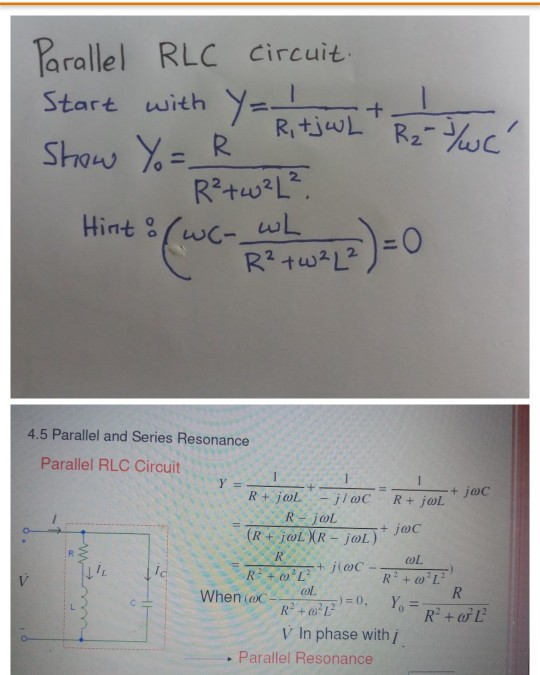 Parallel RLC circuit.
Start with Y = 1/(R₁+jωL) + 1/(R₂-j/ωC'
Show Y₀ = R/(R²+ω²L².
Hint : (ωC - ωL/(R²+ω²L²)) = 0
4.5 Parallel and Series Resonance
Parallel RLC Circuit
Y = 1/(R + jωL) + 1/(- j/ωC) = 1/(R + jωL) + jωC
= (R - jωL)/((R + jωL)(R - jωL)) + jωC
= R/(R² + ω²L²) + j(ωC - ωL/(R² + ω²L²))
When (ωC - ωL/(R² + ω²L²)) = 0, Y₀ = R/(R² + ω²L²)
V̇ In phase with İ
Parallel Resonance
İ
R
i_L
i_C
V̇
L
C